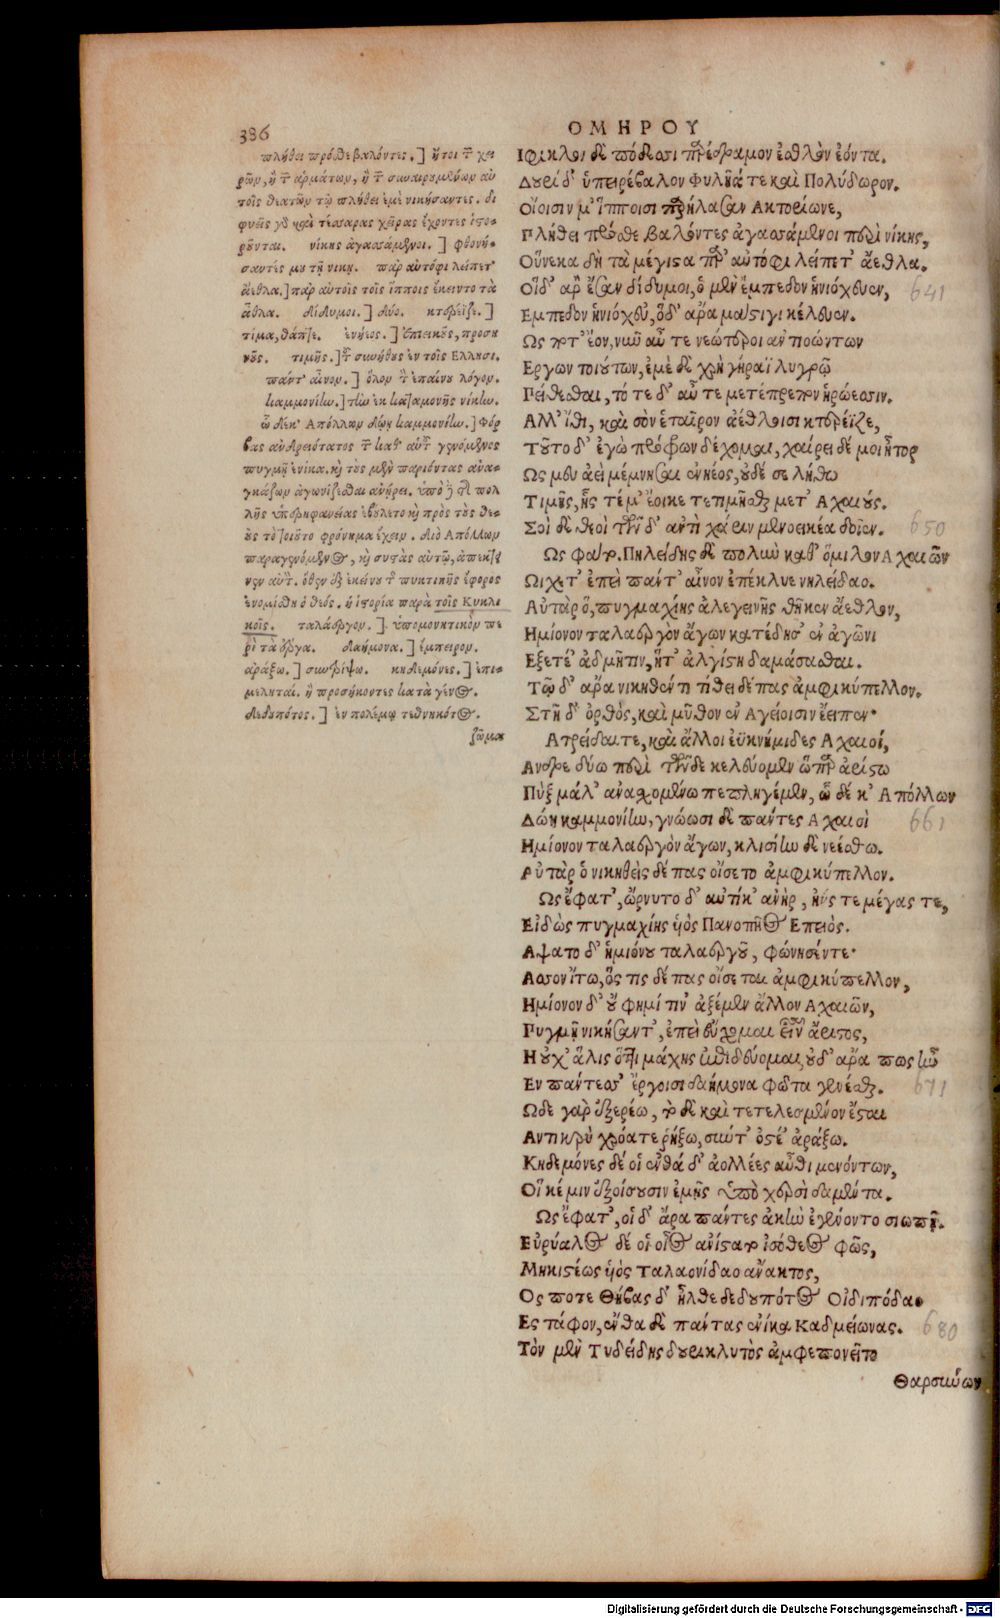 386
ΟΜΗΡΟΥ
πλήθει πρόσθε βαλόντες.] ἤτοι τῶν χει
ρῶν, ἢ τῶν ἁρμάτων, ἢ τῶν συναιρομένων αὐ
τοῖς θεατῶν τῷ πλήθει ἐμὲ νικήσαντες. δι
φυεῖς γὰρ καὶ τέσσαρας χεῖρας ἔχοντες ἱστο-
ροῦνται. νίκης ἀγασσάμενοι.] φθονή-
σαντές μου τῇ νίκῃ. παρ αὐτόφι λείπετ'
ἄεθλα.] παρ αὐτοῖς τοῖς ἵπποις ἔκειντο τὰ
ἆθλα. δίδυμοι.] δύο. κτερέϊζε.]
τίμα, θάπτε. ἐνήεος.] ἐπιεικοῦς, προση
νοῦς. τιμῆς.] τῆς συνήθους ἐν τοῖς Ελλησι.
παντ' αἶνον.] ὅλον τὸν ἐπαίνου λόγον.
καμμονίην.] τὴν ἐκ καταμονῆς νίκην.
ᾧ δέ κ' Απόλλων δώῃ καμμονίην.] Φόρ
βας ἀνδρειότατος τῶν καθ' αὑτὸν γενόμενος
πυγμῇ ἐνίκα. καὶ τοὺς μὲν παριόντας ἀνα-
γκάζων ἀγωνίζεσθαι ἀνῄρει. ὑπὸ δὲ τῆς πολ
λῆς ὑπερηφανείας ἐβούλετο καὶ πρὸς τοὺς θε-
οὺς τὸ τοιοῦτο φρόνημα ἔχειν. διὸ Απόλλων
παραγενόμενος, καὶ συστὰς αὐτῷ, ἀπέκτει
νεν αὐτόν. ὅθεν ἐξ ἐκείνου τῆς πυκτικῆς ἔφορος
ἐνομίσθη ὁ θεός. ἡ ἱστορία παρὰ τοῖς Κυκλι
κοῖς. ταλάεργον.] ὑπομονητικὸν πε
ρὶ τὰ ἔργα. δαήμονα.] ἔμπειρον.
ἀράξω.] συντρίψω. κηδεμόνες.] ἐπι-
μεληταί. ἢ προσήκοντες κατὰ γένος.
δεδουπότος.] ἐν πολέμῳ τεθνηκότος.
ζῶμα
Ιφικλον δὲ πόδεσσι παρέδραμον ἐσθλὸν ἐόντα.
Δουρὶ δ' ὑπειρέβαλον Φυλῆά τε καὶ Πολύδωρον.
Οἴοισίν μ' ἵπποισι παρήλασαν Ακτορίωνε,
Πλήθει πρόσθε βαλόντες ἀγασσάμενοι περὶ νίκης,
Οὕνεκα δὴ τὰ μέγιστα παρ' αὐτόφι λείπετ' ἄεθλα.
Οἱ δ' ἄρ' ἔσαν δίδυμοι, ὁ μὲν ἔμπεδον ἡνιόχευεν, 641
Εμπεδον ἡνιόχευ', ὁ δ' ἄρα μάστιγι κέλευεν.
Ως ποτ' ἔον, νῦν αὖ τε νεώτεροι ἀντιοώντων
Εργων τοιούτων, ἐμὲ δὲ χρὴ γήραϊ λυγρῷ
Πείθεσθαι, τότε δ' αὖ τε μετέπρεπον ἡρώεσσιν.
Αλλ' ἴθι, καὶ σὸν ἑταῖρον ἀέθλοισι κτερέϊζε,
Τοῦτο δ' ἐγὼ πρόφρων δέχομαι, χαίρει δέ μοι ἦτορ
Ως μευ ἀεὶ μέμνησαι ἐνηέος, οὐδέ σε λήθω
Τιμῆς, ἧς τέ μ' ἔοικε τετιμῆσθαι μετ' Αχαιούς.
Σοὶ δὲ θεοὶ τῶνδ' ἀντὶ χάριν μενοεικέα δοῖεν. 650
Ως φάτο. Πηλείδης δὲ πολὺν καθ' ὅμιλον Αχαιῶν
Ωιχετ' ἐπεὶ πάντ' αἶνον ἐπέκλυε νηλείδαο.
Αὐτὰρ ὃ, πυγμαχίης ἀλεγεινῆς θῆκεν ἄεθλον,
Ημίονον ταλαεργὸν ἄγων κατέδησ' ἐν ἀγῶνι
Εξετέ' ἀδμῆτιν, ἥτ' ἀλγίστη δαμάσασθαι.
Τῷ δ' ἄρα νικηθέντι τίθει δέπας ἀμφικύπελλον.
Στῆ δ' ὀρθὸς, καὶ μῦθον ἐν Αγείοισιν ἔειπεν·
Ατρείδαι τε, καὶ ἄλλοι ἐϋκνήμιδες Αχαιοί,
Ανδρε δύω περὶ τῶνδε κελεύομεν ὥπερ ἀρίστω
Πὺξ μάλ' ἀνασχομένω πεπληγέμεν, ᾧ δέ κ' Απόλλων
Δώῃ καμμονίην, γνώωσι δὲ πάντες Αχαιοὶ 661
Ημίονον ταλαεργὸν ἄγων, κλισίην δὲ νεέσθω.
Αὐτὰρ ὁ νικηθεὶς δέπας οἴσετο ἀμφικύπελλον.
Ως ἔφατ', ὤρνυτο δ' αὐτίκ' ἀνὴρ, ἠύς τε μέγας τε,
Εἰδὼς πυγμαχίης υἱὸς Πανοπῆος Επειὸς.
Αψατο δ' ἡμιόνου ταλαεργοῦ, φώνησέν τε·
Ασσον ἴτω, ὅς τις δέπας οἴσεται ἀμφικύπελλον,
Ημίονον δ' οὔ φημί τιν' ἀξέμεν ἄλλον Αχαιῶν,
Πυγμῇ νικήσαντ', ἐπεὶ εὔχομαι εἶναι ἄριστος,
Η οὐχ' ἅλις ὅττι μάχης ἐπιδεύομαι, οὐδ' ἄρα πως ἦν
Εν πάντεσσ' ἔργοισι δαήμονα φῶτα γενέσθαι. 671
Ωδε γὰρ ἐξερέω, τὸ δὲ καὶ τετελεσμένον ἔσται
Αντικρὺ χρόα τε ῥήξω, σύν τ' ὀστέ' ἀράξω.
Κηδεμόνες δέ οἱ ἐνθάδ' ἀολλέες αὖθι μενόντων,
Οἵ κέ μιν ἐξοίσουσιν ἐμῇς ὑπὸ χερσὶ δαμέντα.
Ως ἔφατ', οἱ δ' ἄρα πάντες ἀκὴν ἐγένοντο σιωπῇ.
Εὐρύαλος δέ οἱ οἶος ἀνίστατο ἰσόθεος φῶς,
Μηκιστέως υἱὸς Ταλαονίδαο ἄνακτος,
Ος ποτε Θήβας δ' ἦλθε δεδουπότος Οἰδιπόδαο
Ες τάφον, ἔνθα δὲ πάντας ἐνίκα Καδμείωνας. 680
Τὸν μὲν Τυδείδης δουρικλυτὸς ἀμφεπονεῖτο
Θαρσύνων
Digitalisierung gefördert durch die Deutsche Forschungsgemeinschaft - DFG